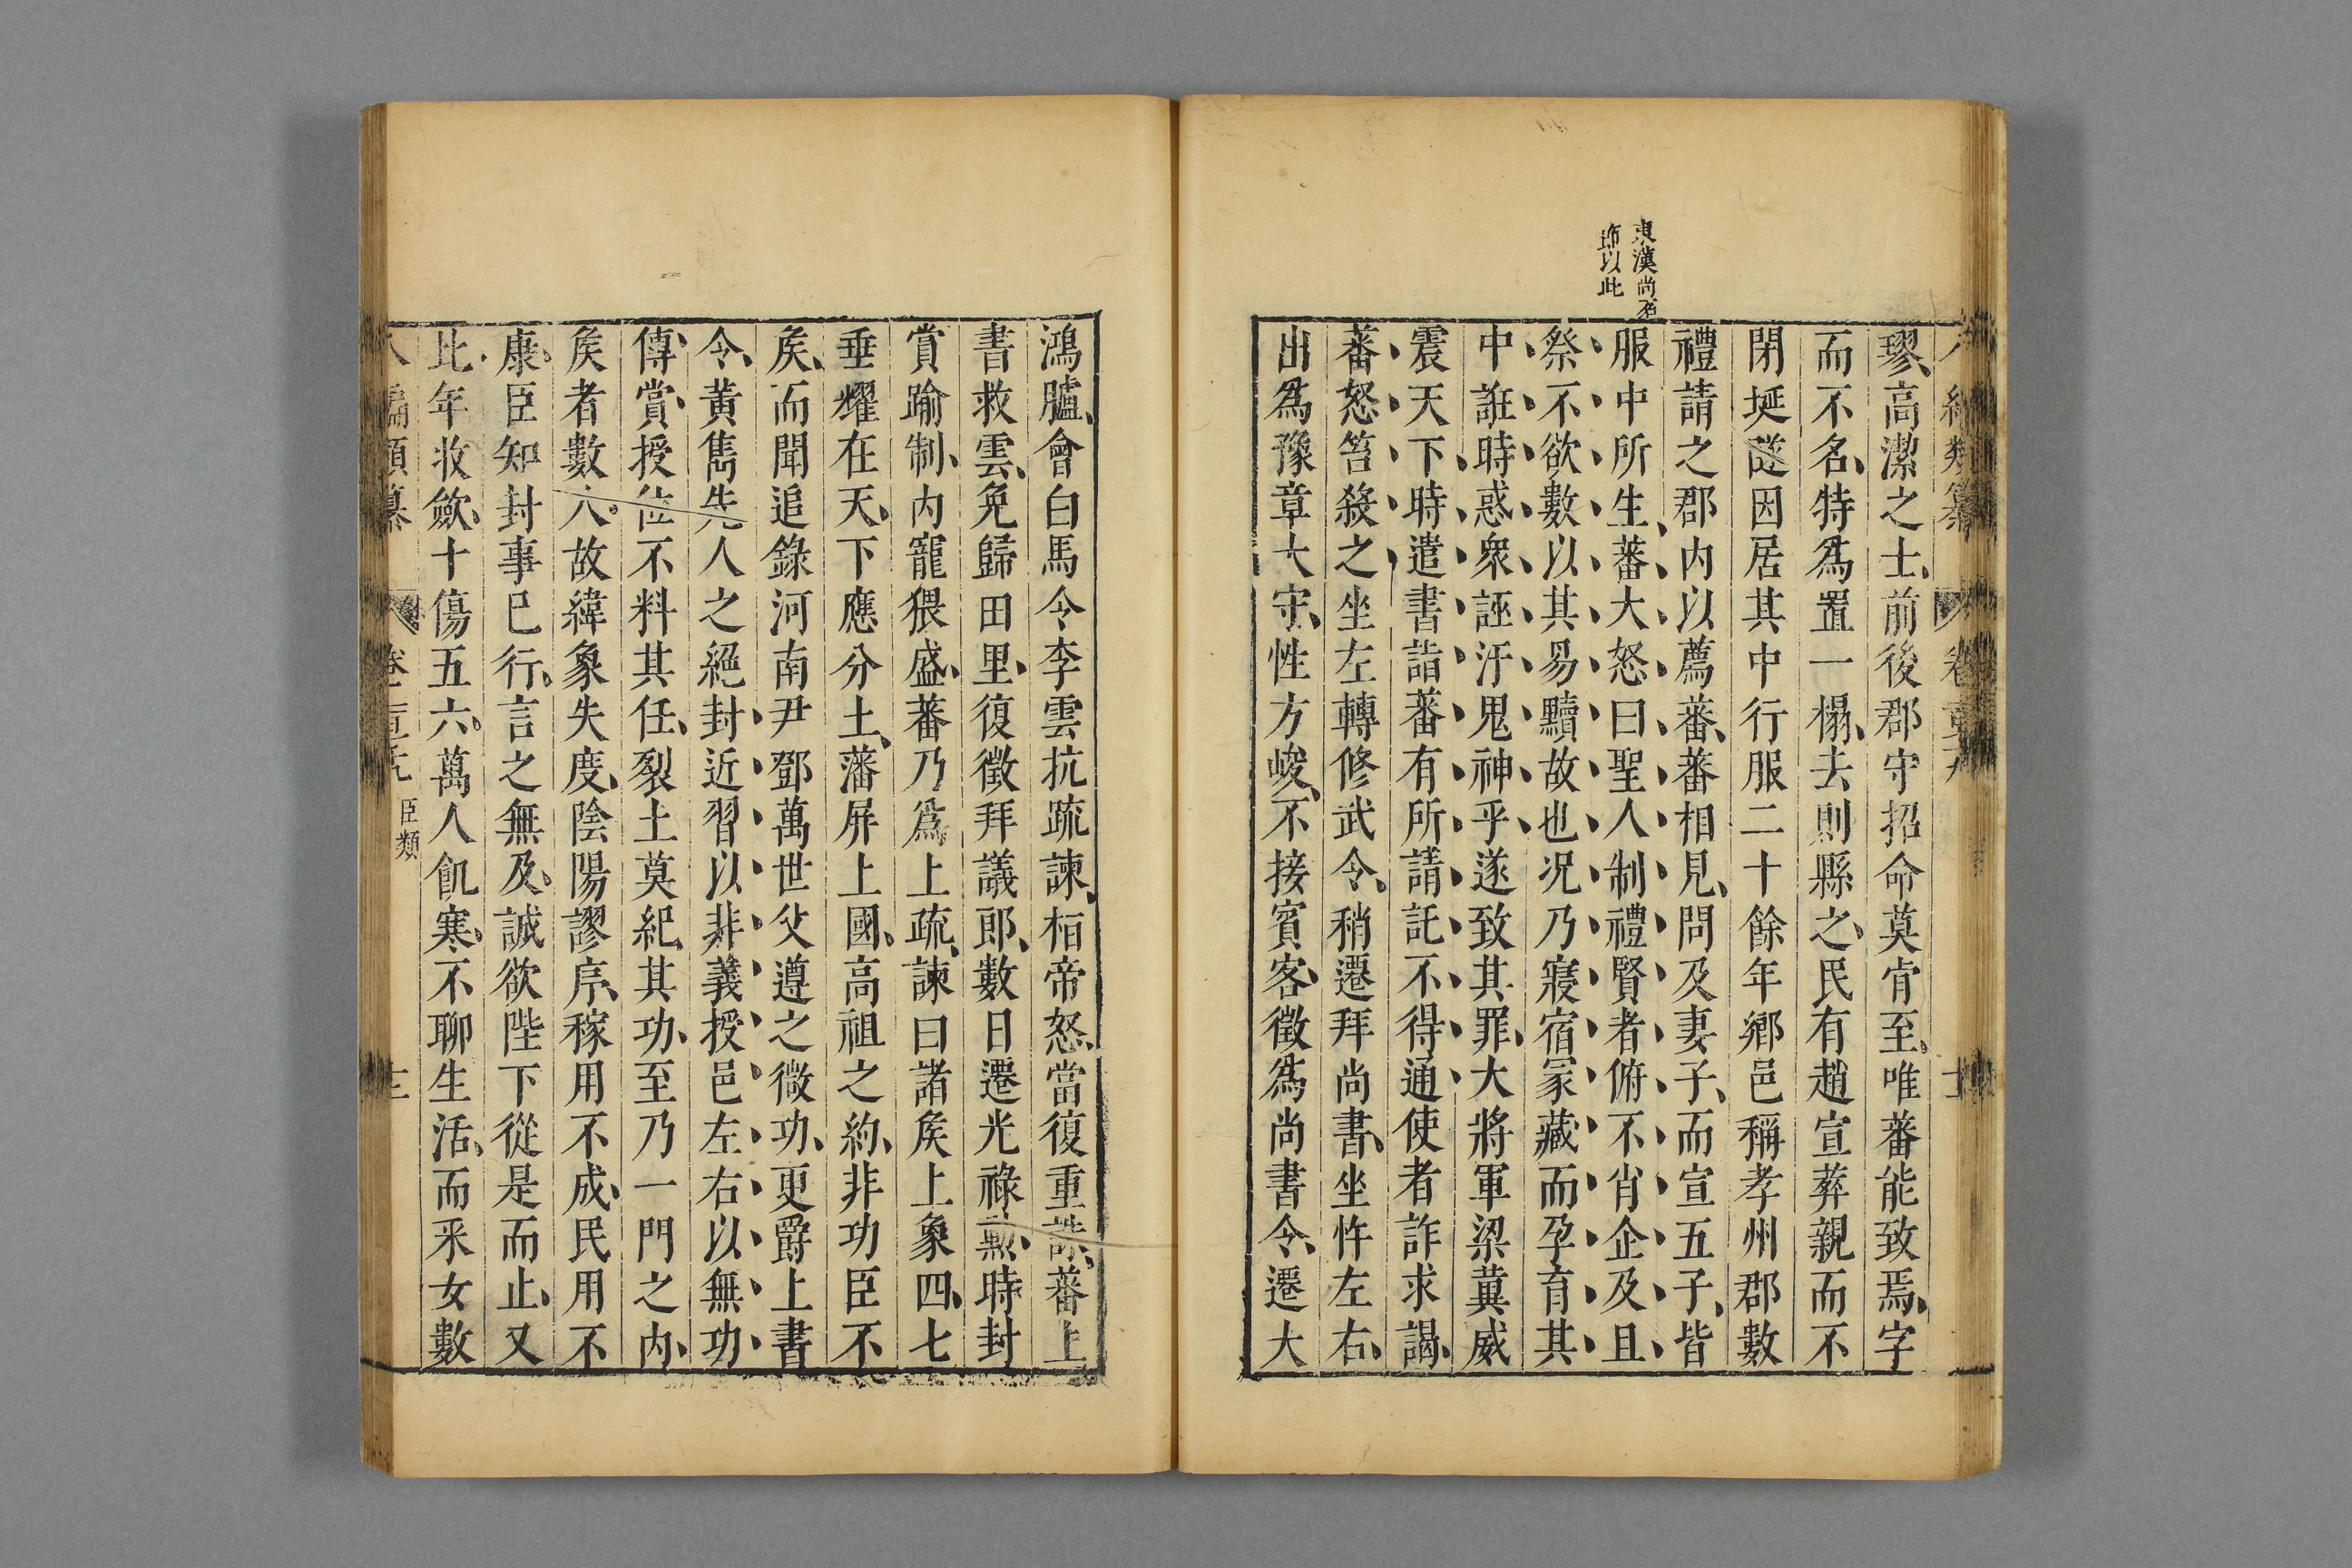 東漢尚名
節以此
璆、高潔之士、前後郡守招命莫肯至。唯蕃能致焉、字
而不名、特爲置一榻、去則縣之、民有趙宣葬親而不
閉埏隧因居其中行服二十餘年鄉邑稱孝州郡數
禮請之郡内以薦蕃、蕃相見、問及妻子、而宣五子、皆
服中所生、蕃大怒曰聖人制禮賢者俯不肖企及且
祭不欲數以其易黷故也况乃寢宿冢藏而孕育其
中誑時惑衆誣汙鬼神乎遂致其罪、大將軍梁冀威
震天下、時遣書詣蕃有所請託不得通使者詐求謁、
蕃怒笞殺之坐左轉修武令、稍遷拜尚書、坐忤左右、
出爲豫章大守、性方峻、不接賓客、徵爲尚書令、遷大
鴻臚、會白馬令李雲抗疏諫、桓帝怒、當復重誅、蕃上
書救雲、免歸田里、復徵拜議郎、數日遷光祿勳、時封
賞踰制、内寵猥盛、蕃乃爲上疏、諫曰諸矦上象四、七
垂耀在天、下應分土、藩屏上國、高祖之約、非功臣不
矦、而聞追錄河南尹鄧萬世父遵之微功、更爵上書
令、黃雋先人之絕封近習以非義授邑左右以無功
傳、賞、授位不料其任、裂土莫紀、其功、至乃一門之内、
矦者數人。故緯象失度、陰陽謬序、稼用不成、民用不
康、臣知封事已行、言之無及、誠欲陛下從是而止、又
比年收斂、十傷五六。萬人飢寒、不聊生活、而釆女數
卷
臣類